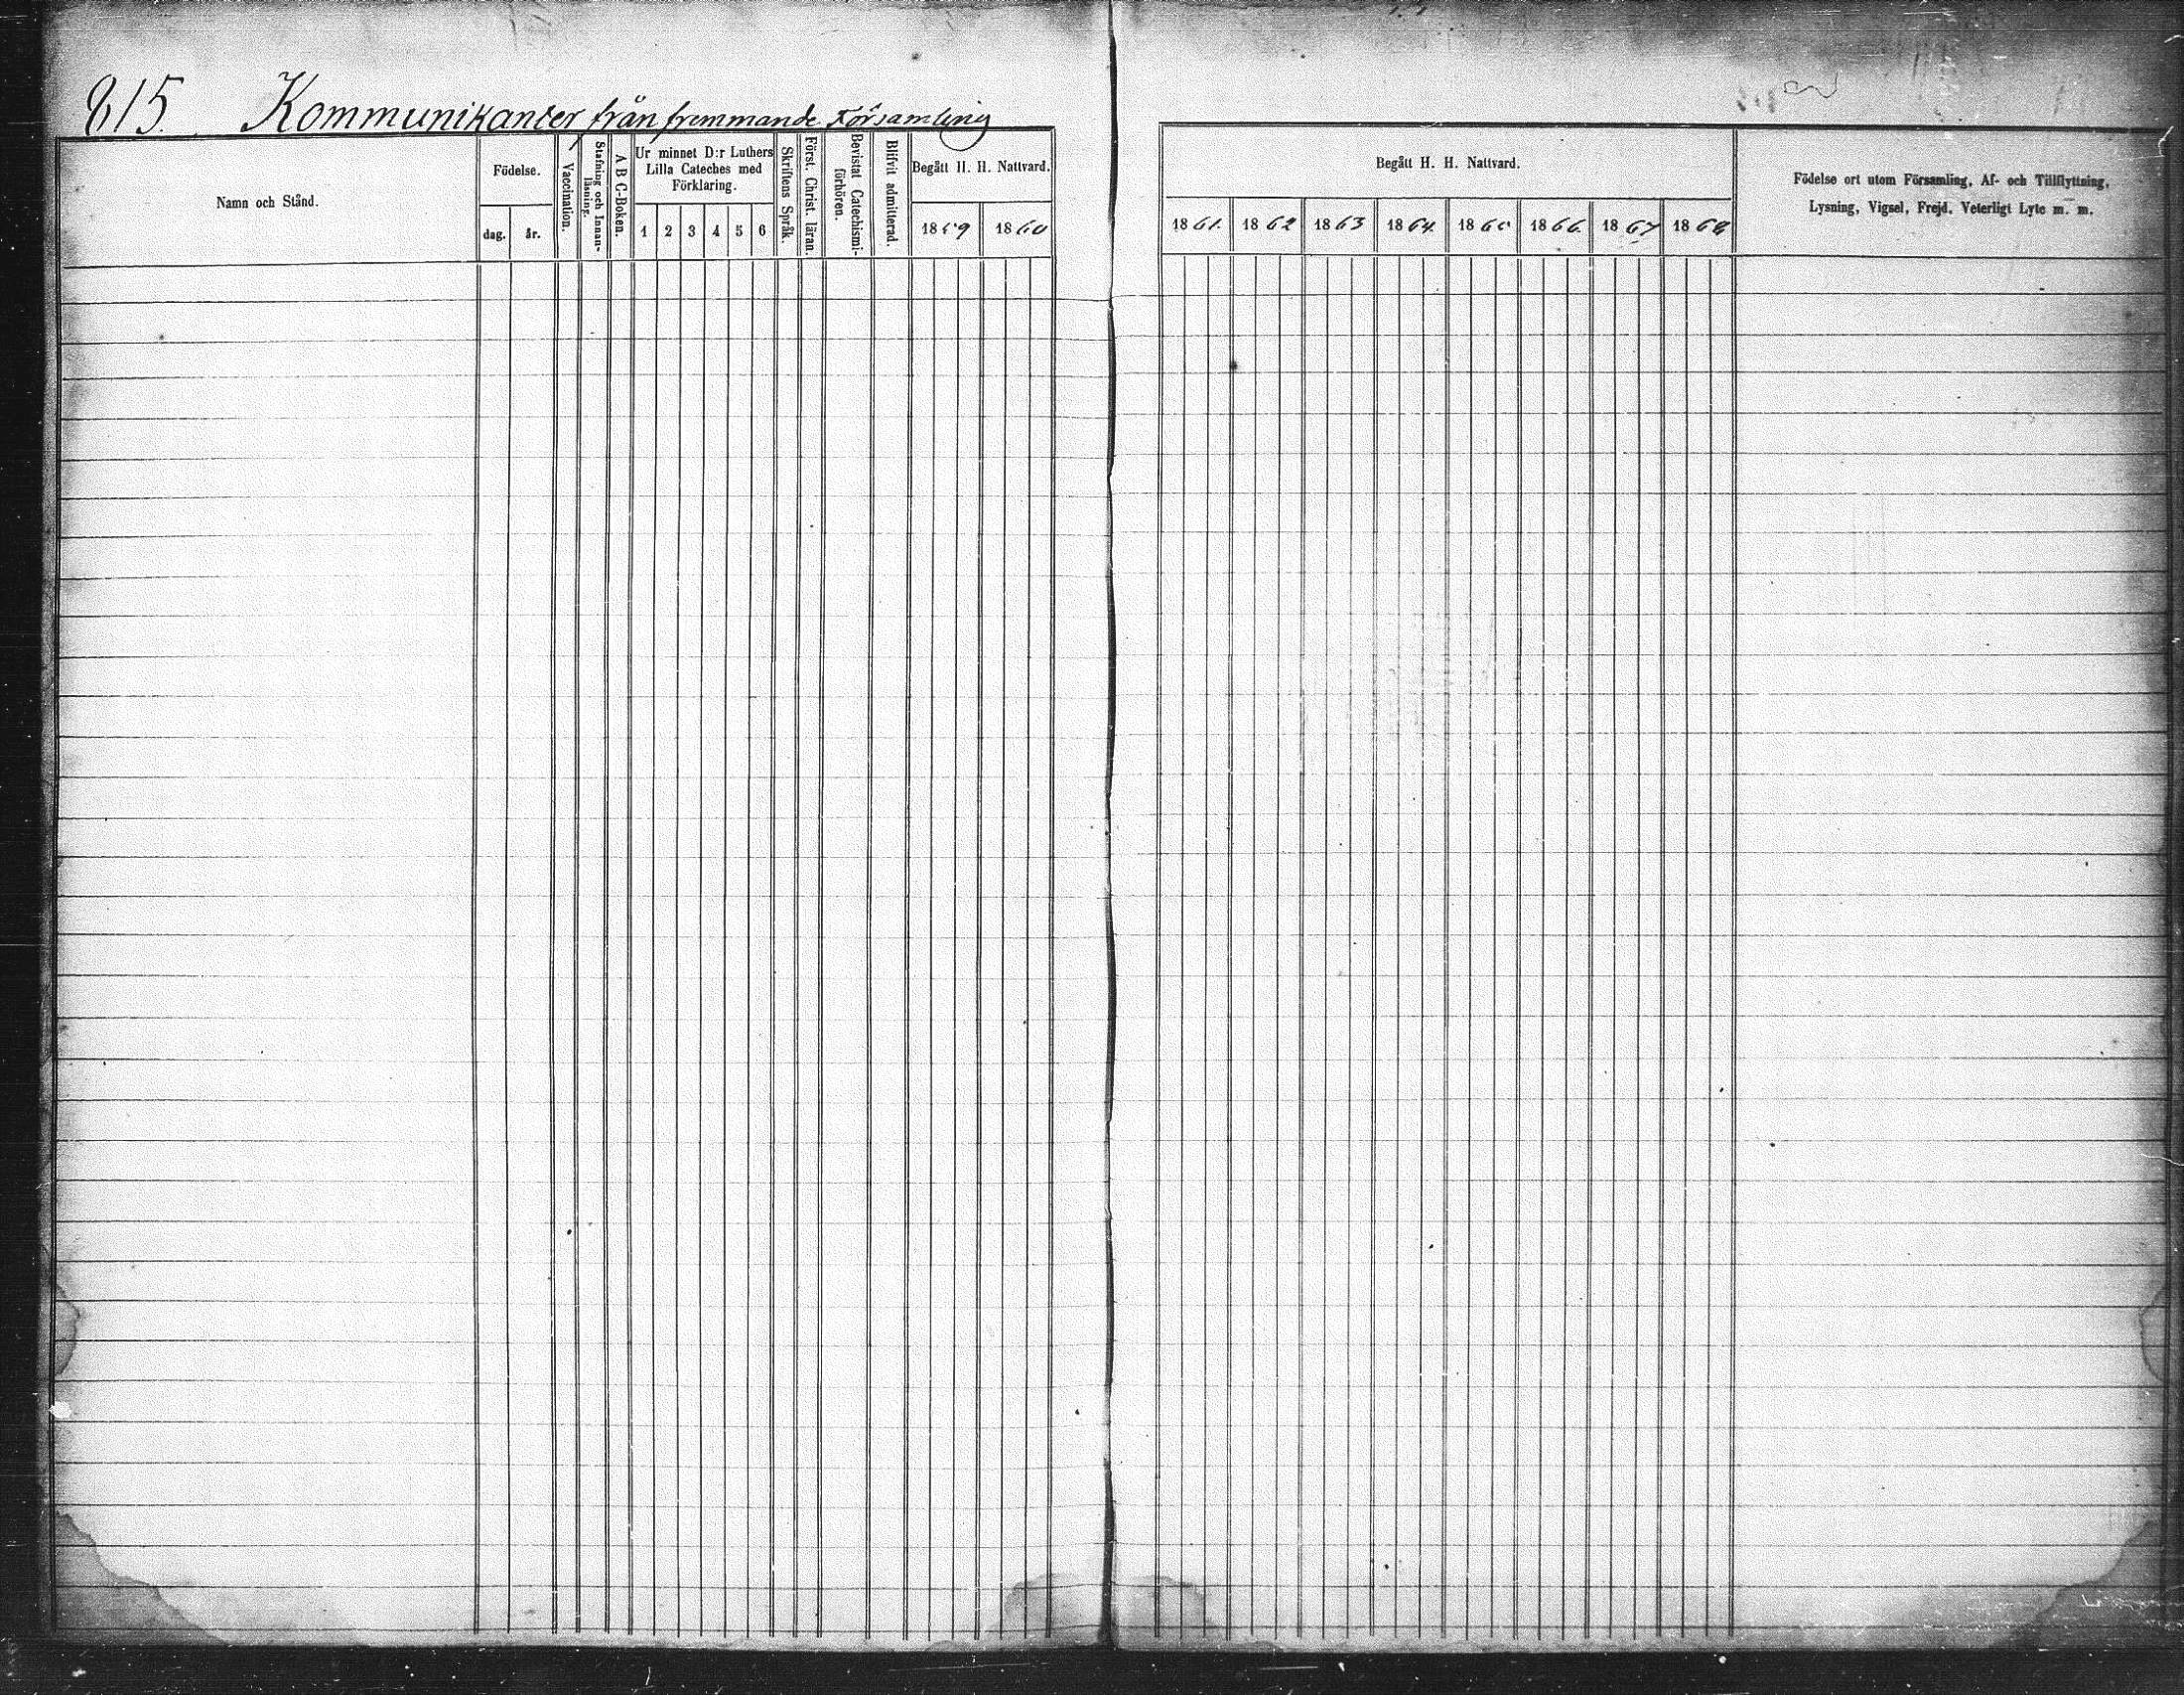 815. Kommunikanter från fremmande Församling
Namn och Stånd.
Födelse.
dag. år.
Vaccination.
Stafning och Innan-
läsning.
A B C-Boken.
Ur minnet D:r Luthers
Lilla Cateches med
Förklaring.
1 2 3 4 5 6
Skriftens Språk.
Först. Christ. läran.
Bevistat Catechismi-
förhören.
Blifvit admitterad.
Begått H. H. Nattvard.
1859 1860
Begått H. H. Nattvard.
1861. 1862 1863 1864. 1865 1866. 1867 1868
Födelse ort utom Församling, Af- och Tillflyttning,
Lysning, Vigsel, Frejd, Veterligt Lyte m. m.